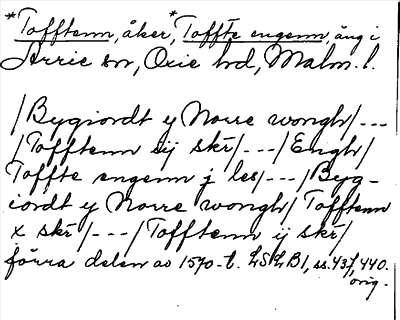 *Tofftenn, åker, *Toffte engenn, äng i
Arrie sn, Oxie hd, Malm. l.
/Bygiordt y Norre wongh/---
/Tofftenn sij skr̄/---/Engh/
Toffte engenn j les/---/Byg-
iordt y Norre wongh/Tofftenn
x skr̄/---/Tofftenn ij skr̄/
förra delen av 1570-t. LSLB1, ss. 437, 440.
orig.